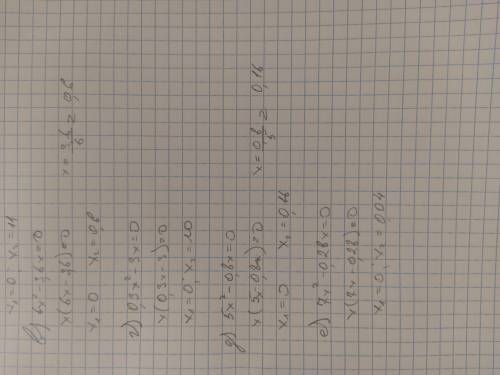 x₁=0; x₂=11
в) 6x²-3,6x=0
x(6x-3,6)=0 x=3,6/6=0,6
x₁=0 x₂=0,6
г) 0,3x²-3x=0
x(0,3x-3)=0
x₁=0; x₂=10
д) 5x²-0,8x=0
x(5x-0,8x)=0 x=0,8/5=0,16
x₁=0 x₂=0,16
е) 7x²-0,28x=0
x(7x-0,28)=0
x₁=0; x₂=0,04